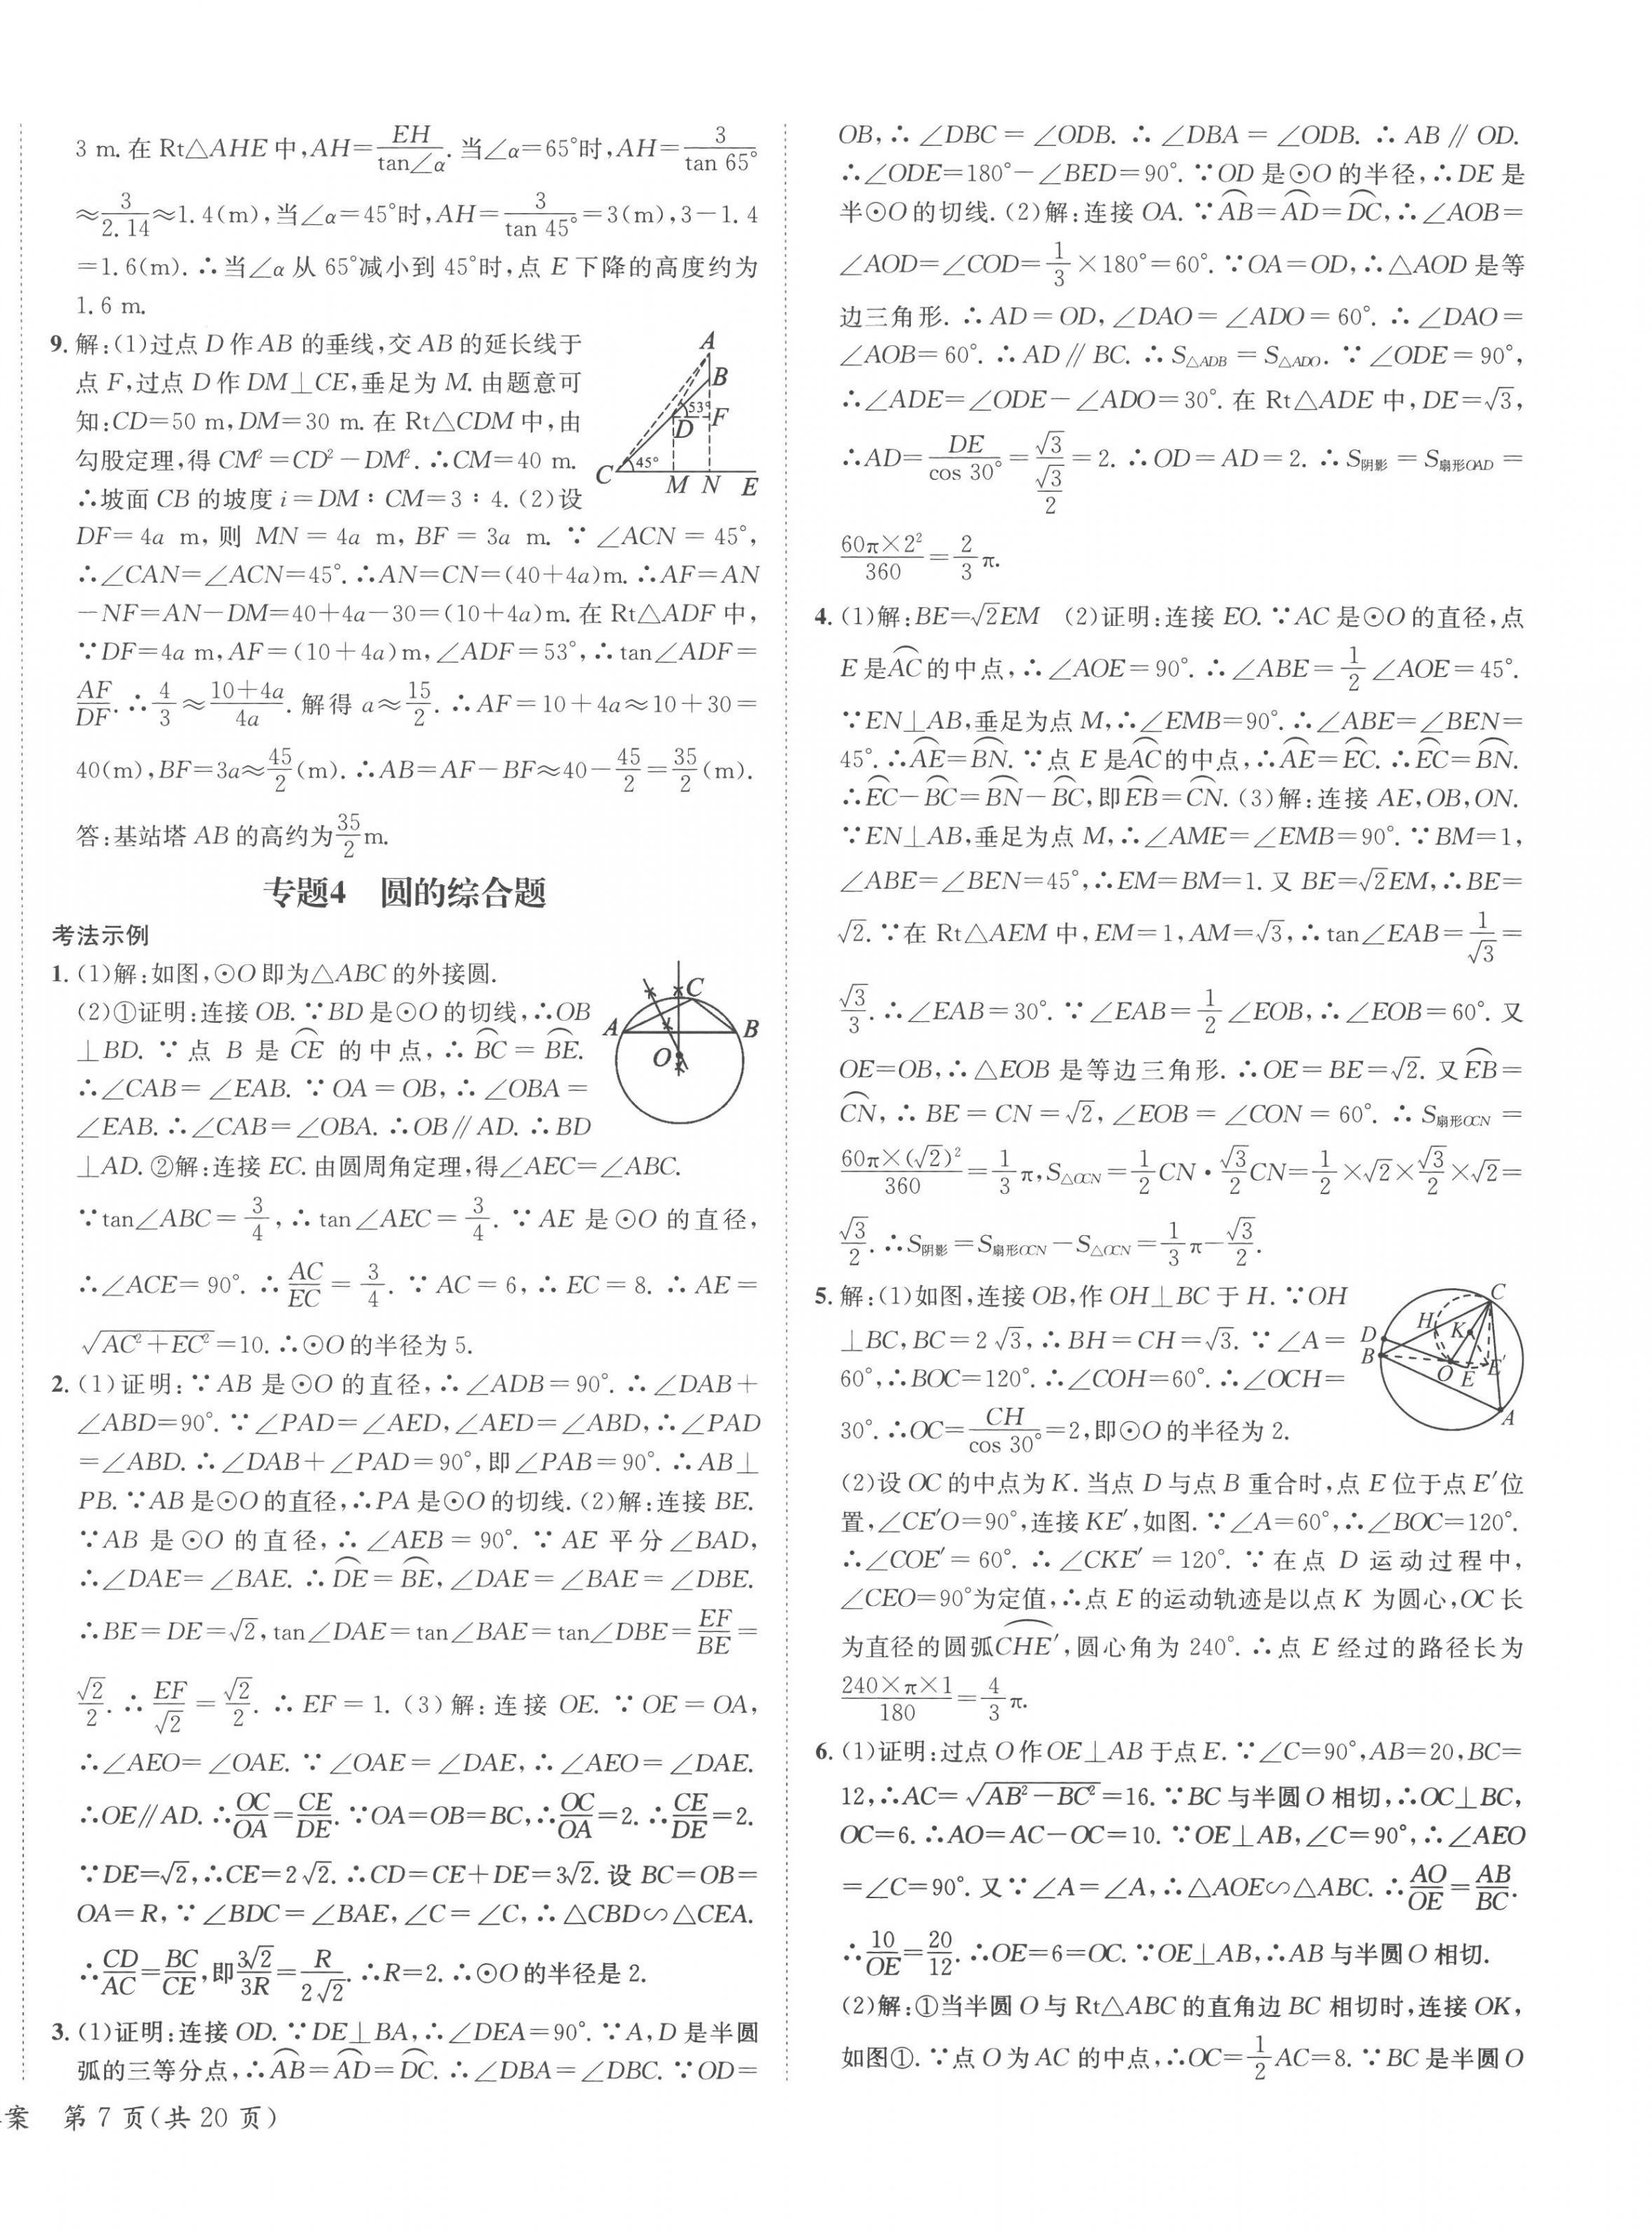 3 m. 在 Rt△AHE 中,AH=EH/tan∠α. 当∠α=65°时,AH=3/tan 65°
≈3/2.14≈1.4(m),当∠α=45°时,AH=3/tan 45°=3(m),3-1.4
=1.6(m). ∴当∠α 从 65°减小到 45°时,点 E 下降的高度约为
1.6 m.
9. 解:(1)过点 D 作 AB 的垂线,交 AB 的延长线于
点 F,过点 D 作 DM⊥CE,垂足为 M. 由题意可
知:CD=50 m,DM=30 m. 在 Rt△CDM 中,由
勾股定理,得 CM²=CD²-DM². ∴CM=40 m.
∴坡面 CB 的坡度 i=DM∶CM=3∶4. (2)设
A
B
53°
F
D
C
45°
M N E
DF=4a m,则 MN=4a m,BF=3a m. ∵∠ACN=45°,
∴∠CAN=∠ACN=45°. ∴AN=CN=(40+4a)m. ∴AF=AN
-NF=AN-DM=40+4a-30=(10+4a)m. 在 Rt△ADF 中,
∵DF=4a m,AF=(10+4a)m,∠ADF=53°,∴tan∠ADF=
AF/DF. ∴4/3≈(10+4a)/4a. 解得 a≈15/2. ∴AF=10+4a≈10+30=
40(m),BF=3a≈45/2(m). ∴AB=AF-BF≈40-45/2=35/2(m).
答:基站塔 AB 的高约为35/2m.
专题4 圆的综合题
考法示例
1. (1)解:如图,⊙O 即为△ABC 的外接圆.
(2)①证明:连接 OB. ∵BD 是⊙O 的切线,∴OB
⊥BD. ∵点 B 是 C͡E 的中点,∴B͡C=B͡E.
∴∠CAB=∠EAB. ∵OA=OB,∴∠OBA=
∠EAB. ∴∠CAB=∠OBA. ∴OB∥AD. ∴BD
⊥AD. ②解:连接 EC. 由圆周角定理,得∠AEC=∠ABC.
C
A
B
O
∵tan∠ABC=3/4,∴tan∠AEC=3/4. ∵AE 是⊙O 的直径,
∴∠ACE=90°. ∴AC/EC=3/4. ∵AC=6,∴EC=8. ∴AE=
√(AC²+EC²)=10. ∴⊙O 的半径为 5.
2. (1)证明:∵AB 是⊙O 的直径,∴∠ADB=90°. ∴∠DAB+
∠ABD=90°. ∵∠PAD=∠AED,∠AED=∠ABD,∴∠PAD
=∠ABD. ∴∠DAB+∠PAD=90°,即∠PAB=90°. ∴AB⊥
PB. ∵AB 是⊙O 的直径,∴PA 是⊙O 的切线. (2)解:连接 BE.
∵AB 是⊙O 的直径,∴∠AEB=90°. ∵AE 平分∠BAD,
∴∠DAE=∠BAE. ∴D͡E=B͡E,∠DAE=∠BAE=∠DBE.
∴BE=DE=√2,tan∠DAE=tan∠BAE=tan∠DBE=EF/BE=
√2/2. ∴EF/√2=√2/2. ∴EF=1. (3)解:连接 OE. ∵OE=OA,
∴∠AEO=∠OAE. ∵∠OAE=∠DAE,∴∠AEO=∠DAE.
∴OE∥AD. ∴OC/OA=CE/DE. ∵OA=OB=BC,∴OC/OA=2. ∴CE/DE=2.
∵DE=√2,∴CE=2√2. ∴CD=CE+DE=3√2. 设 BC=OB=
OA=R,∵∠BDC=∠BAE,∠C=∠C,∴△CBD∽△CEA.
∴CD/AC=BC/CE,即3√2/3R=R/2√2. ∴R=2. ∴⊙O 的半径是 2.
3. (1)证明:连接 OD. ∵DE⊥BA,∴∠DEA=90°. ∵A,D 是半圆
弧的三等分点,∴A͡B=A͡D=D͡C. ∴∠DBA=∠DBC. ∵OD=
OB,∴∠DBC=∠ODB. ∴∠DBA=∠ODB. ∴AB∥OD.
∴∠ODE=180°-∠BED=90°. ∵OD 是⊙O 的半径,∴DE 是
半⊙O 的切线. (2)解:连接 OA. ∵A͡B=A͡D=D͡C,∴∠AOB=
∠AOD=∠COD=1/3×180°=60°. ∵OA=OD,∴△AOD 是等
边三角形. ∴AD=OD,∠DAO=∠ADO=60°. ∴∠DAO=
∠AOB=60°. ∴AD∥BC. ∴S△ADB=S△ADO. ∵∠ODE=90°,
∴∠ADE=∠ODE-∠ADO=30°. 在 Rt△ADE 中,DE=√3,
∴AD=DE/cos 30°=√3/(√3/2)=2. ∴OD=AD=2. ∴S阴影=S扇形OAD=
60π×2²/360=2/3π.
4. (1)解:BE=√2EM (2)证明:连接 EO. ∵AC 是⊙O 的直径,点
E 是A͡C的中点,∴∠AOE=90°. ∴∠ABE=1/2∠AOE=45°.
∵EN⊥AB,垂足为点 M,∴∠EMB=90°. ∴∠ABE=∠BEN=
45°. ∴A͡E=B͡N. ∵点 E 是A͡C的中点,∴A͡E=E͡C. ∴E͡C=B͡N.
∴E͡C-B͡C=B͡N-B͡C,即E͡B=C͡N. (3)解:连接 AE,OB,ON.
∵EN⊥AB,垂足为点 M,∴∠AME=∠EMB=90°. ∵BM=1,
∠ABE=∠BEN=45°,∴EM=BM=1. 又 BE=√2EM,∴BE=
√2. ∵在 Rt△AEM 中,EM=1,AM=√3,∴tan∠EAB=1/√3=
√3/3. ∴∠EAB=30°. ∵∠EAB=1/2∠EOB,∴∠EOB=60°. 又
OE=OB,∴△EOB 是等边三角形. ∴OE=BE=√2. 又E͡B=
C͡N,∴BE=CN=√2,∠EOB=∠CON=60°. ∴S扇形OCN=
60π×(√2)²/360=1/3π,S△OCN=1/2CN·√3/2CN=1/2×√2×√3/2×√2=
√3/2. ∴S阴影=S扇形OCN-S△OCN=1/3π-√3/2.
5. 解:(1)如图,连接 OB,作 OH⊥BC 于 H. ∵OH
⊥BC,BC=2√3,∴BH=CH=√3. ∵∠A=
60°,∴BOC=120°. ∴∠COH=60°. ∴∠OCH=
30°. ∴OC=CH/cos 30°=2,即⊙O 的半径为 2.
C
H
K
D
B
O E E′
A
(2)设 OC 的中点为 K. 当点 D 与点 B 重合时,点 E 位于点 E′位
置,∠CE′O=90°,连接 KE′,如图. ∵∠A=60°,∴∠BOC=120°.
∴∠COE′=60°. ∴∠CKE′=120°. ∵在点 D 运动过程中,
∠CEO=90°为定值,∴点 E 的运动轨迹是以点 K 为圆心,OC 长
为直径的圆弧C͡HE′,圆心角为 240°. ∴点 E 经过的路径长为
240×π×1/180=4/3π.
6. (1)证明:过点 O 作 OE⊥AB 于点 E. ∵∠C=90°,AB=20,BC=
12,∴AC=√(AB²-BC²)=16. ∵BC 与半圆 O 相切,∴OC⊥BC,
OC=6. ∴AO=AC-OC=10. ∵OE⊥AB,∠C=90°,∴∠AEO
=∠C=90°. 又∵∠A=∠A,∴△AOE∽△ABC. ∴AO/OE=AB/BC.
∴10/OE=20/12. ∴OE=6=OC. ∵OE⊥AB,∴AB 与半圆 O 相切.
(2)解:①当半圆 O 与 Rt△ABC 的直角边 BC 相切时,连接 OK,
如图①. ∵点 O 为 AC 的中点,∴OC=1/2AC=8. ∵BC 是半圆 O
案 第 7 页(共 20 页)